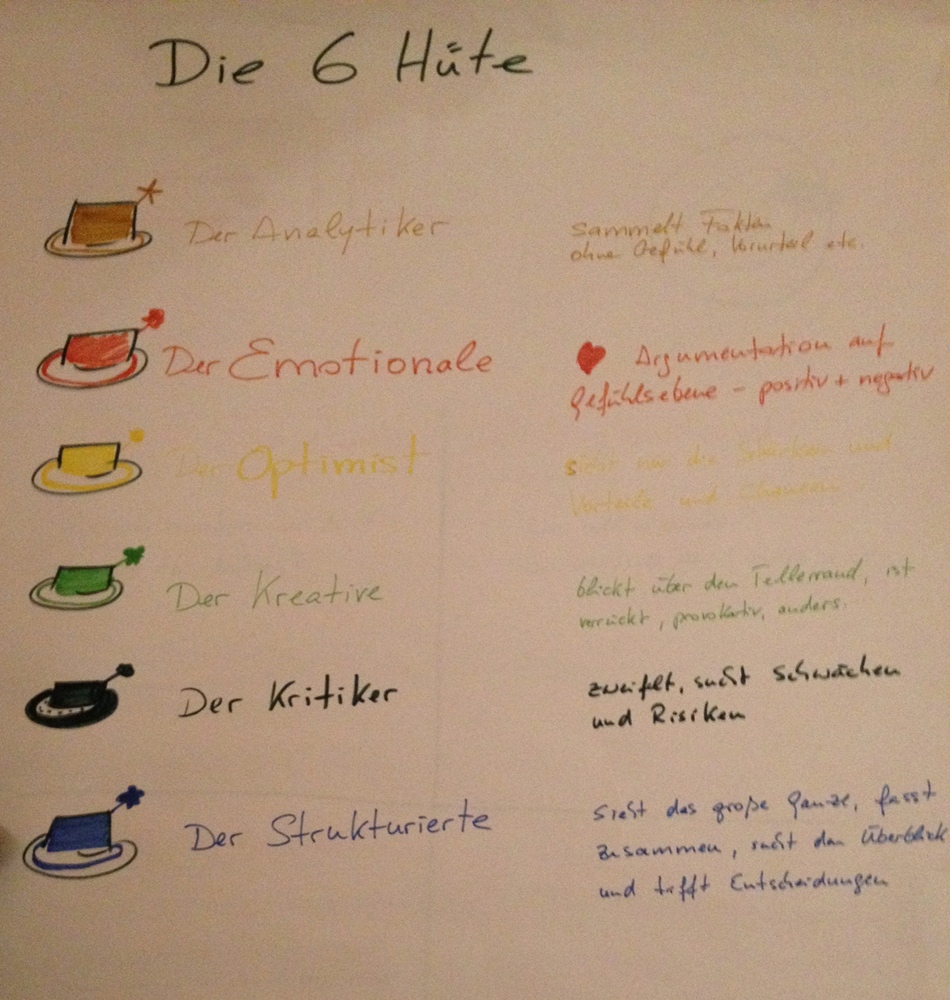 Die 6 Hüte
Der Analytiker
sammelt Fakten
ohne Gefühl, Vorurteil etc.
Der Emotionale
Argumentation auf
Gefühlsebene - positiv + negativ
Der Optimist
sieht nur die Stärken und
Vorteile und Chancen
Der Kreative
blickt über den Tellerrand, ist
verrückt, provokativ, anders.
Der Kritiker
zweifelt, sucht Schwächen
und Risiken
Der Strukturierte
Sieht das große Ganze, fasst
zusammen, sucht den Überblick
und trifft Entscheidungen